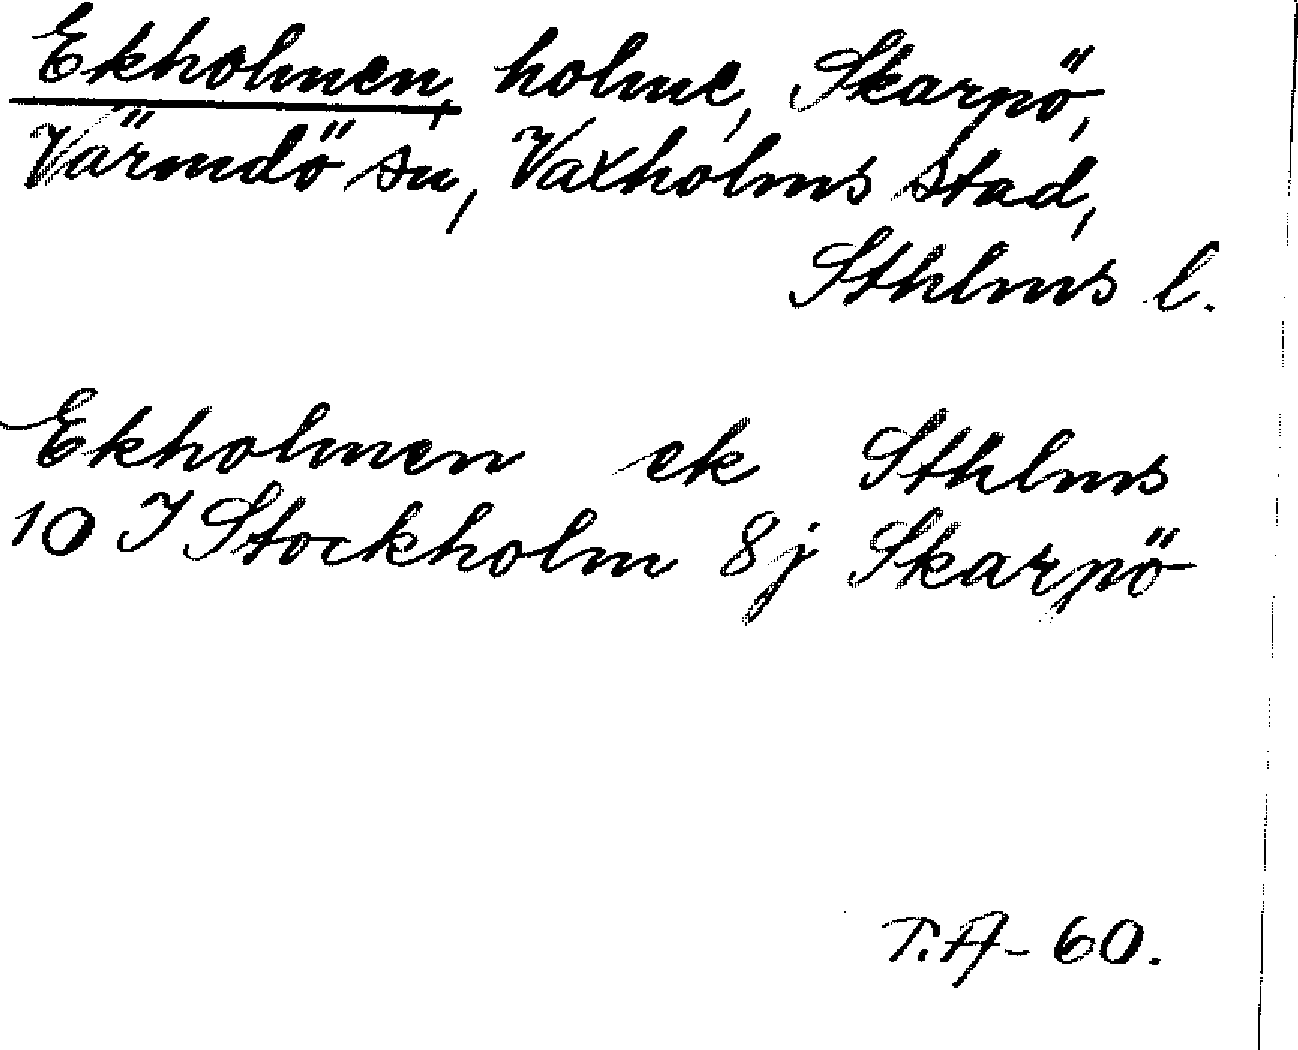 Ekholmen, holme, Skarpö,
Värmdö sn, Vaxholms stad,
Sthlms l.
Ekholmen ek Sthlms
10 I Stockholm 8j Skarpö
T.A-60.